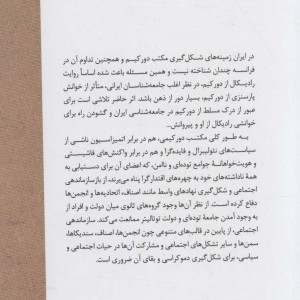 در ایران زمینه‌های شکل‌گیری مکتب دورکیم و همچنین تداوم آن در
فرانسه چندان شناخته نیست و همین مسئله باعث شده اساساً روایت
رادیکال از دورکیم، در نظر اغلب جامعه‌شناسان ایرانی، متأثر از خوانش
پارسنزی از دورکیم، بسیار دور از ذهن باشد. اثر حاضر تلاشی است برای
عبور از درک مسلط از دورکیم در جامعه‌شناسی ایران و گشودن راه برای
خوانشی رادیکال از او و پیروانش..
به طور کلی مکتب دورکیمی، هم در برابر اتمیزاسیون ناشی از
سیاست‌های نئولیبرال و فایده‌گرا و هم در برابر واکنش‌های فاشیستی
و هویت‌خواهانهٔ جوامع توده‌ای و ناامن، که اعضای آن برای دستیابی به
همهٔ ناداشته‌های خود به چهره‌های اقتدارگرا پناه می‌برند، از بازسازماندهی
اجتماعی و شکل‌گیری نهادهای واسط مانند اصناف، اتحادیه‌ها و انجمن‌ها
دفاع کرده است. از نظر آن‌ها وجود گروه‌های ثانوی میان دولت و افراد از
به وجود آمدن جامعهٔ توده‌ای و دولت توتالیتر ممانعت می‌کند. سازماندهی
اجتماعی، از پایین در قالب‌های متنوعی چون انجمن‌ها، اصناف، سندیکاها،
سمن‌ها و سایر تشکل‌های اجتماعی و مشارکت آن‌ها در حیات اجتماعی و
سیاسی، برای شکل‌گیری دموکراسی و بقای آن ضروری است.